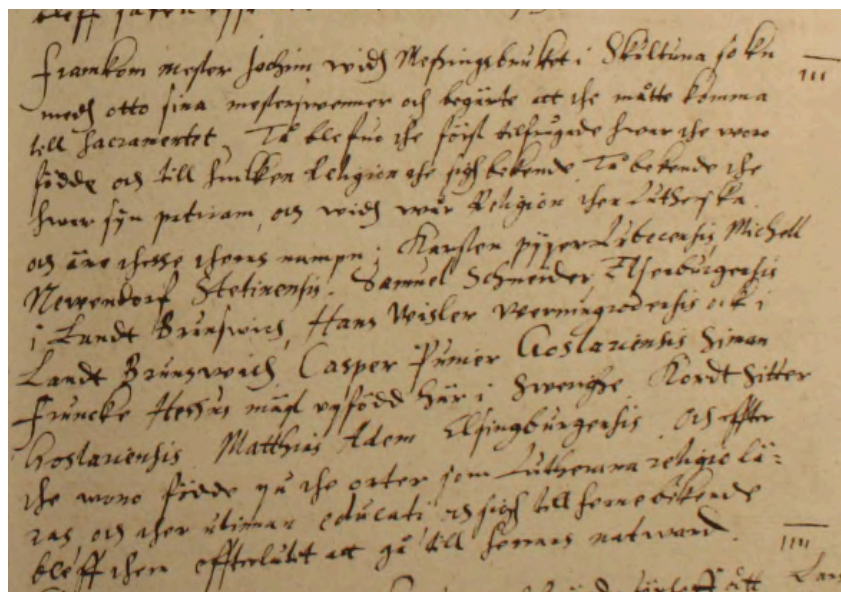 bleff
Framkom mester Jochim widh Messingsbruket i Skultuna sokn
III
medh otto sina mesterswenner och begärte att the måtte komma
till Sacramentet. Tå blefuo the först tilfrågade hwar the woro
födde och till huilken Religion the sigh bekende. Tå bekende the
hwar syn patriam, och widh wår Religion then Lutherska
och äre thesse theres nampn; Karsten pyper Lubecensis, Michell
Newendorf Stetinensis. Samuel Schneider, Elsenburgensis
i Landt Brunswich, Hans Wisler werningrodensis ock i
Landt Brunswich, Casper Pumer Goslariensis Siman
Francke Hessus mägt upfödd här i Swerighe. Kordt Sitter
Goslariensis Matthias Adem Elsingburgensis. och effter
the woro födde på the orter som Lutherana religio lä=
ras och ther utinnan educati och sigh till henne bekende
bleff them effterlåtet att gå till herrans natward.
IIII